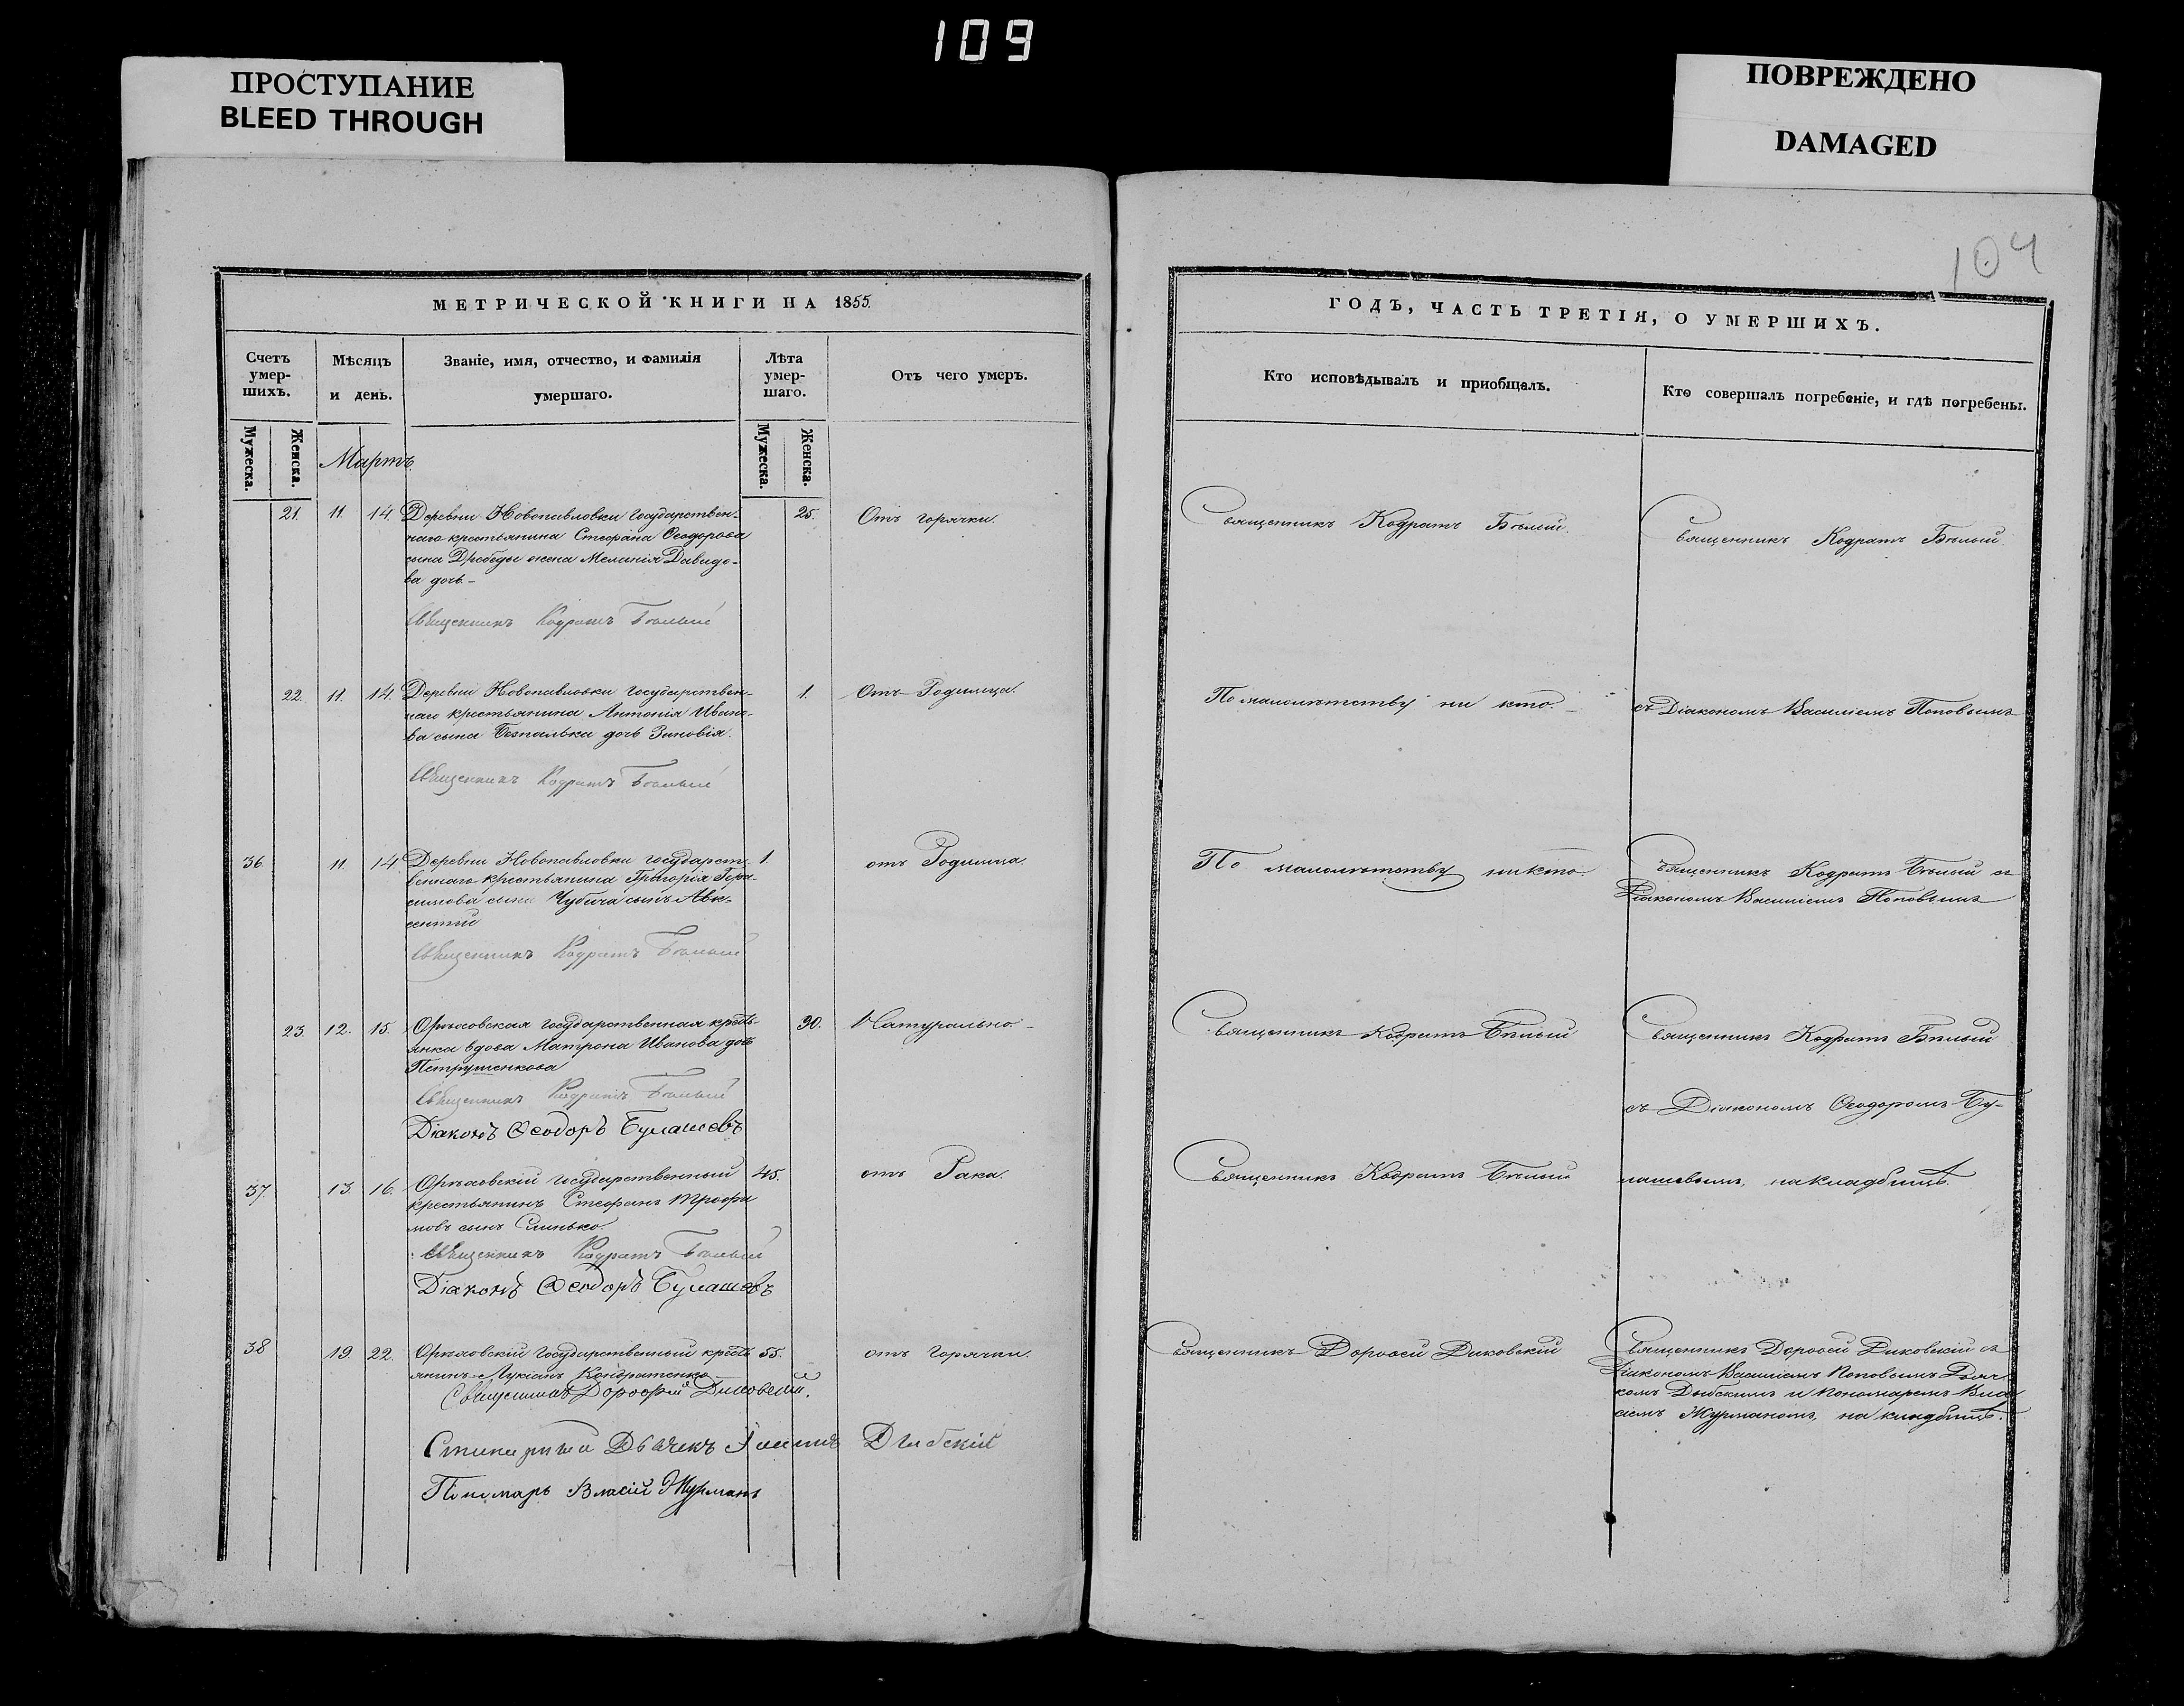 109
ПРОСТУПАНИЕ
BLEED THROUGH
ПОВРЕЖДЕНО
DAMAGED
104
МЕТРИЧЕСКОЙ КНИГИ НА 1855.
Счетъ умер-шихъ.
Мѣсяцъ и день.
Званіе, имя, отчество, и фамилія умершаго.
Лѣта умер-шаго.
Отъ чего умеръ.
Мужеска.
Женска.
Мужеска.
Женска.
Мартъ
21. 11. 14. Деревни Новопавловки государствен- 25. Отъ горячки.
наго крестьянина Стефана Ѳеодорова
сына Дрободы жена Меланія Давидо-
ва дочь.
Священникъ Кодратъ Бѣлый
22. 11. 14. Деревни Новопавловки государствен- 1. Отъ Родимца.
наго крестьянина Антонія Ивано-
ва сына Безпалька дочь Зиновія.
Священникъ Кодратъ Бѣлый
36. 11. 14. Деревни Новопавловки государст- 1. отъ Родимца.
веннаго крестьянина Григорія Гера-
симова сына Чубича сынъ Авк-
сентій
Священникъ Кодратъ Бѣлый
23. 12. 15. Орѣховская государственная кресть- 90. Натурально.
янка вдова Матрона Иванова дочь
Петрушенкова
Священникъ Кодратъ Бѣлый
Діаконъ Ѳеодоръ Булашевъ
37 13. 16. Орѣховскій государственный 45. отъ Рака.
крестьянинъ Стефанъ Трофи
мовъ сынъ Слинько.
Священникъ Кодратъ Бѣлый
Діаконъ Ѳеодоръ Булашевъ
38 19. 22. Орѣховскій государственный кресть 55. отъ горячки.
янинъ Лукіанъ Кондратенко
Священникъ Дорофей Диковскій.
Дьячекъ
Пономарь Власій Журманъ
ГОДЪ, ЧАСТЬ ТРЕТІЯ, О УМЕРШИХЪ.
Кто исповѣдывалъ и приобщалъ.
Кто совершалъ погребеніе, и гдѣ погребены.
Священникъ Кодратъ Бѣлый.
Священникъ Кодратъ Бѣлый.
По малолѣтству ни кто.
съ Діакономъ Василіемъ Поповымъ
По малолѣтству никто.
Священникъ Кодратъ Бѣлый съ
Діакономъ Василіемъ Поповымъ
Священникъ Кодратъ Бѣлый
Священникъ Кодратъ Бѣлый
съ Діакономъ Ѳеодоромъ Бу-
Священникъ Кодратъ Бѣлый
лашевымъ, на кладбищѣ.
Священникъ Дороѳей Диковскій
Священникъ Дороѳей Диковскій съ
Діакономъ Василіемъ Поповымъ Дьяч
комъ и Пономаремъ Вла
сіемъ Журманомъ, на кладбищѣ.